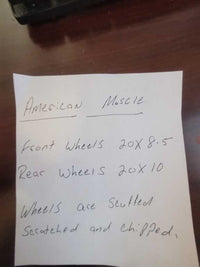 American Muscle
Front Wheels 20X8.5
Rear Wheels 20X10
Wheels are Scuffed
Scratched and chipped.